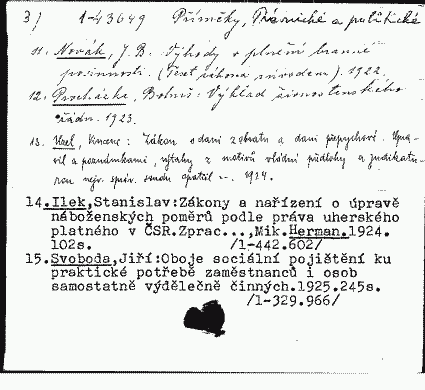 3) 1-43649 Příručky, Právnické a politické
11. Novák, J. B. Výhody v plnění branné
povinnosti. (Text zákona s úvodem). 1922.
12. Procházka, Bohuš: Výklad živnostenského
řádu. 1923.
13. Hexel, Vincenc: Zákon o dani z obratu a dani přepychové. Upra-
vil a poznámkami, výtahy z motivů vládní předlohy a judikatu-
rou nejv. správ. soudu opatřil -. 1924.
14. Ilek,Stanislav:Zákony a nařízení o úpravě
náboženských poměrů podle práva uherského
platného v ČSR.Zprac...,Mik.Herman.1924.
102s. /1-442.602/
15.Svoboda,Jiří:Oboje sociální pojištění ku
praktické potřebě zaměstnanců i osob
samostatně výdělečně činných.1925.245s.
/1-329.966/